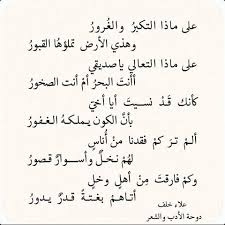 على ماذا التكبرُ والغُرورُ
وهذي الأرضِ تملؤها القبورُ
على ماذا التعالي ياصديقي
أأنتَ البحرُ أمْ أنت الصخورُ
كأنك قدْ نسيتَ أيا أخي
بأنَّ الكون يملكهُ الغفورُ
ألمْ ترَ كمْ فقدنا منْ أُناسٍ
لهُمْ نخلٌ وأسوارٌ قصورُ
وكمْ فارقتَ مِنْ أهلٍ وخلٍ
أتاهمْ بغتةً قدرٌ يدورُ
علاء خلف
دوحة الأدب والشعر